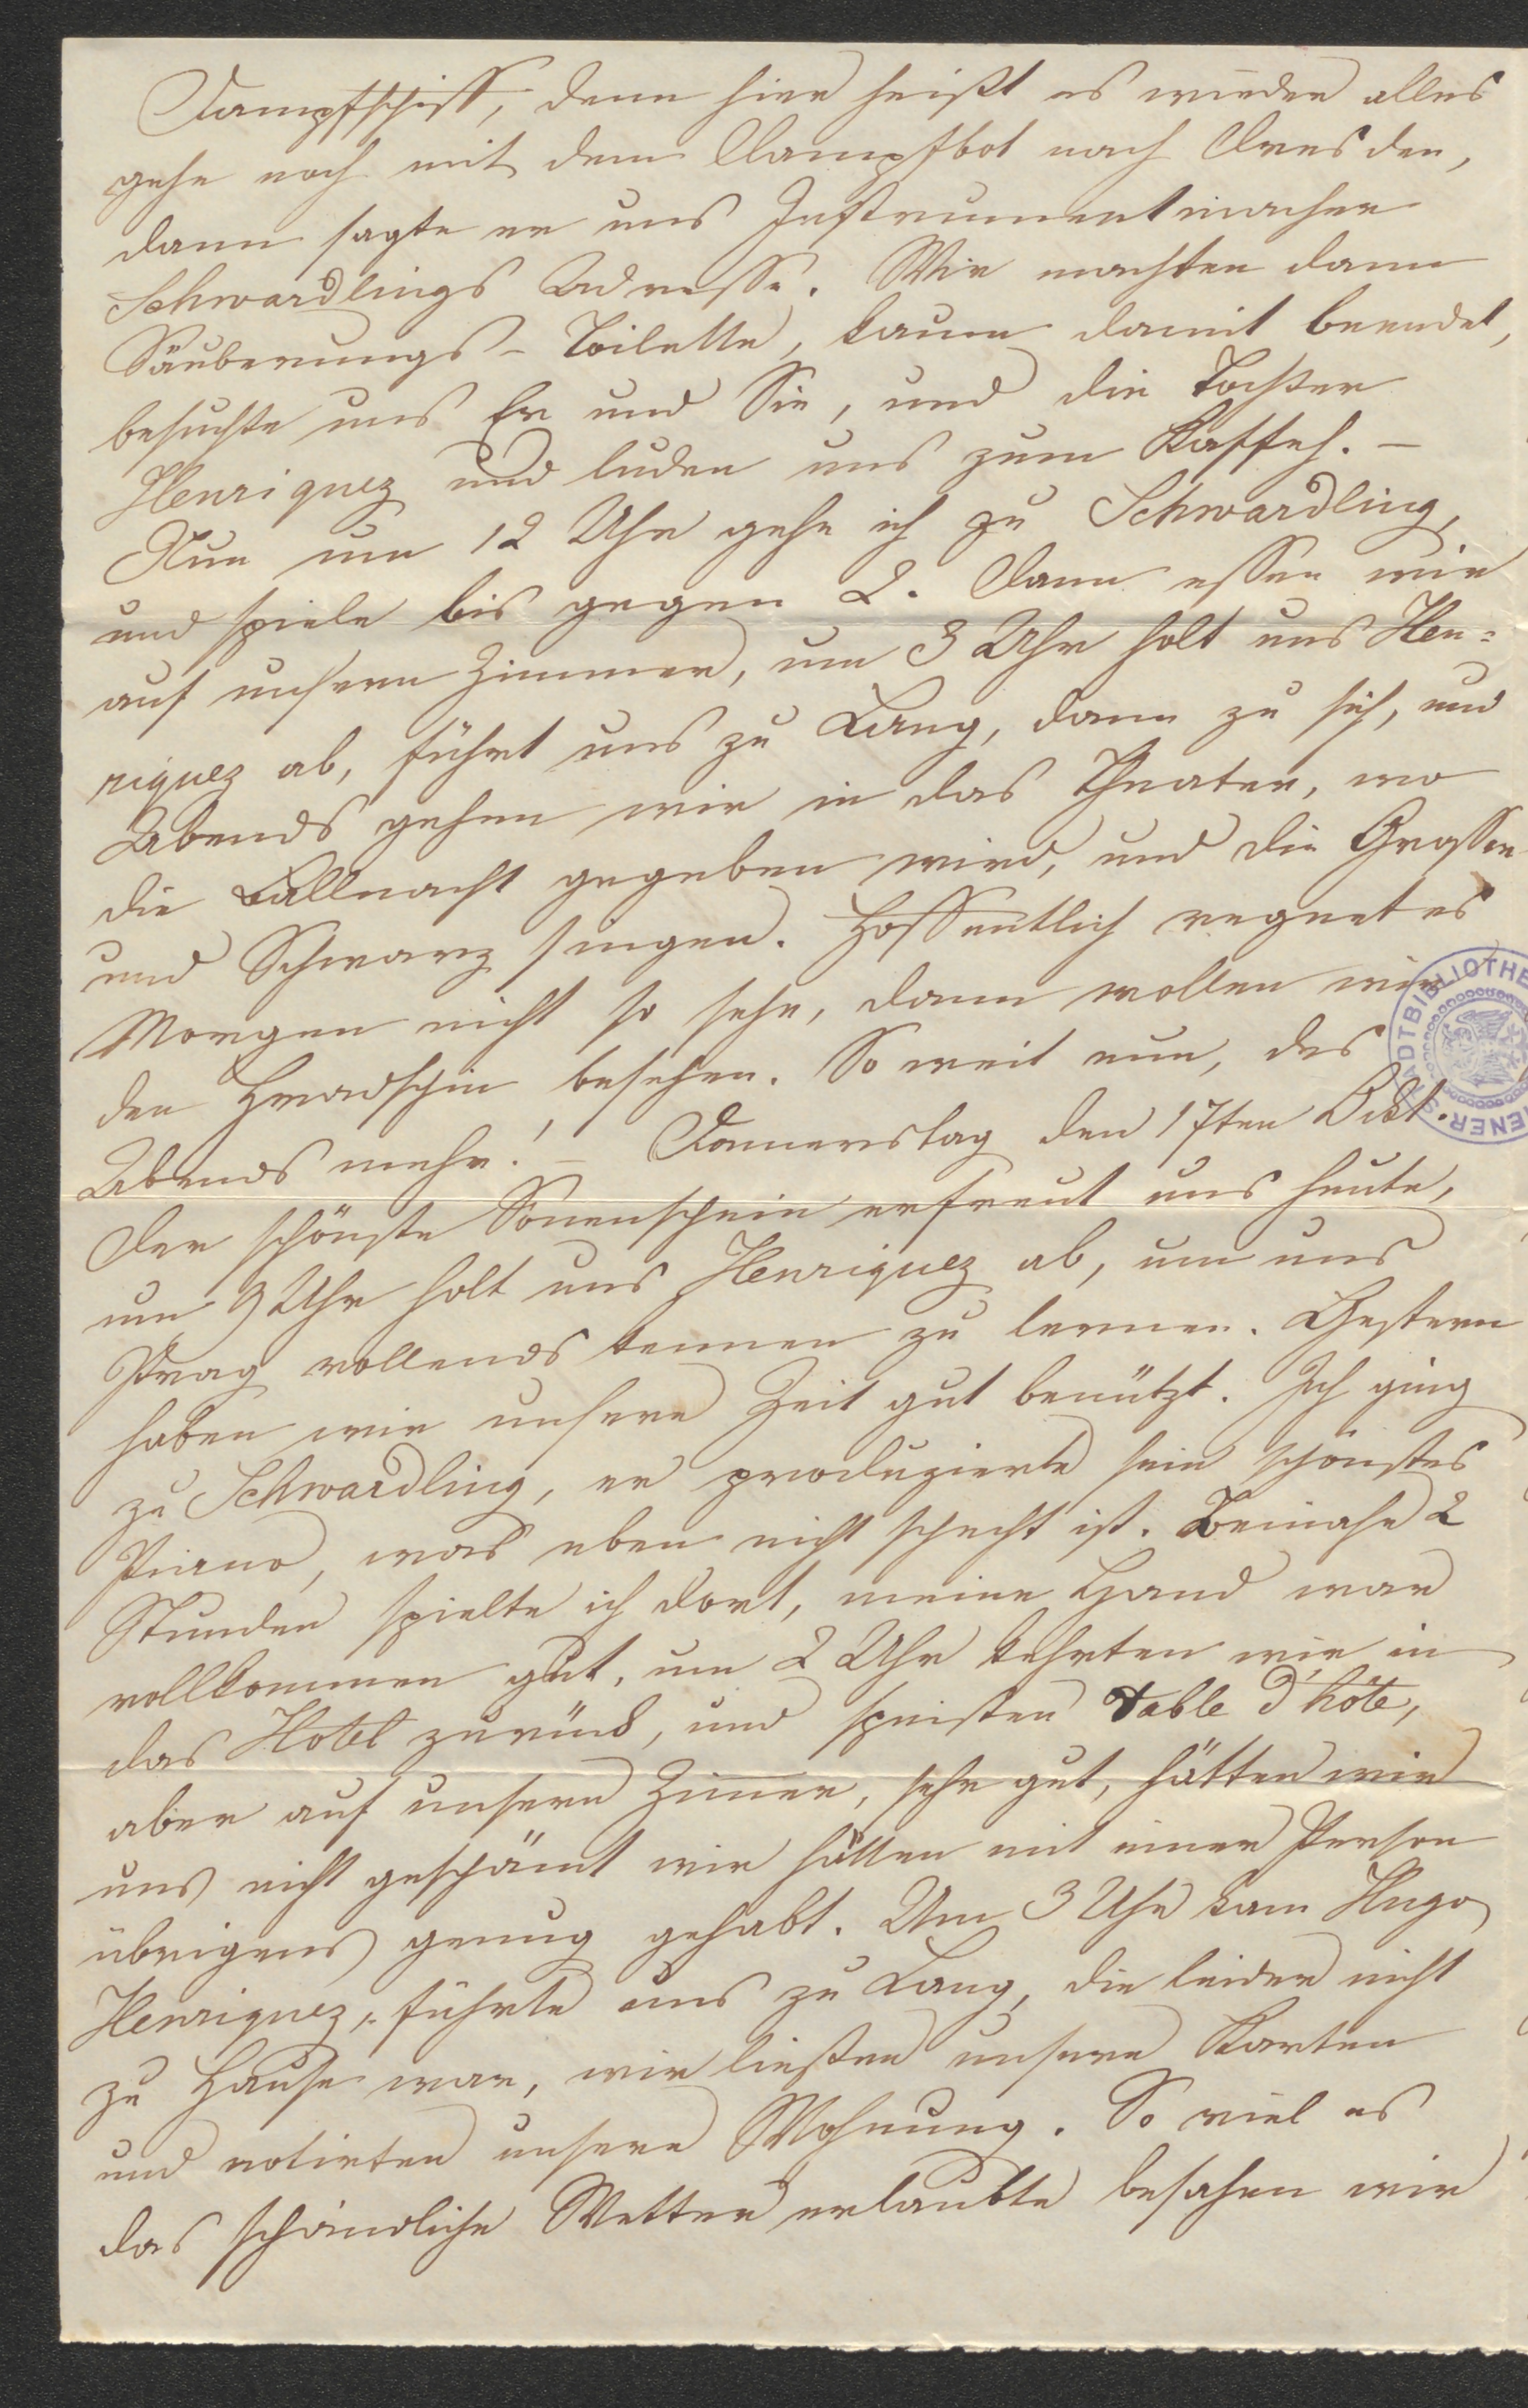 Dampfschiff, denn hier heißt es wieder alles
gehe noch mit dem Dampfbot nach Dresden,
dann sagte er uns Instrumentmacher
Schwardlings Adresse. Wir machten dann
Säuberungs-Toilette, kaum damit beendet,
besuchte uns Er und Sie, und die Tochter
Henriquez und luden uns zum Kaffeh. –
Nun um 12 Uhr gehe ich zu Schwardling,
und spiele bis gegen 2. Dann essen wir
auf unsern Zimmer, um 3 Uhr holt uns Hen=
riquez ab, führt uns zu Lang, dann zu sich, und
Abends gehen wir in das Theater, wo
die Ballnacht gegeben wird, und die Grosser
und Schwarz singen. Hoffentlich regnet es
Morgen nicht so sehr, dann wollen wir
den Hradschin besehen. So weit nun, des
Abends mehr! – Donnerstag den 17ten Okt.
Der schönste Sonenschein erfreut uns heute,
um 9 Uhr holt uns Henriquez ab, um uns
Prag vollends kennen zu lernen. Gestern
haben wir unsere Zeit gut benützt. Ich ging
zu Schwardling, er produzierte sein schönstes
Piano, was eben nicht schecht ist. Beinahe 2
Stunden spielte ich dort, meine Hand war
vollkommen gut, um 2 Uhr kehrten wir in
das Hotel zurück, und speisten table d'hôte,
aber auf unsern Zimer, sehr gut, hätten wir
uns nicht geschämt wir hätten mit einer Person
übrigens genug gehabt. Um 3 Uhr kam Hugo
Henriquez, führte uns zu Lang, die leider nicht
zu Hause war, wir ließen unsere Karten
und notirten unsere Wohnung. So viel es
das schändliche Wetter erlaubte besahen wir